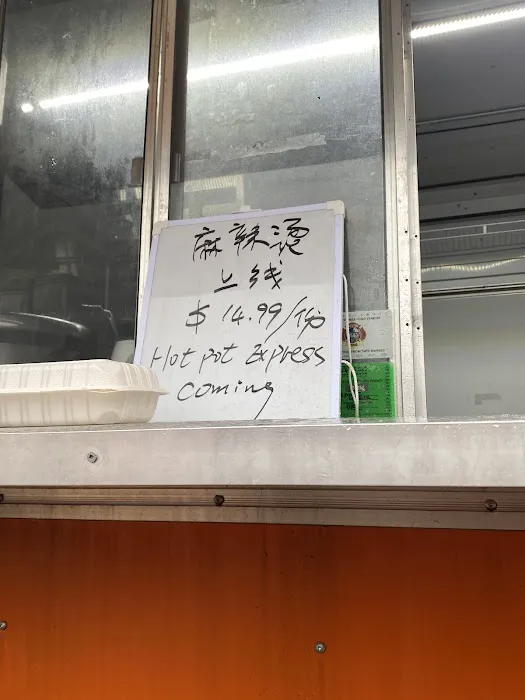 麻辣烫
上线
$ 14.99/份
Hot pot Express
coming